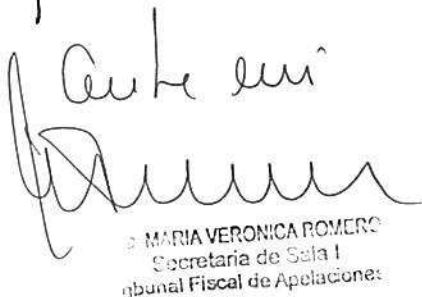 ante mi
MARIA VERONICA ROMERO
Secretaria de Sala I
ibunal Fiscal de Apelaciones